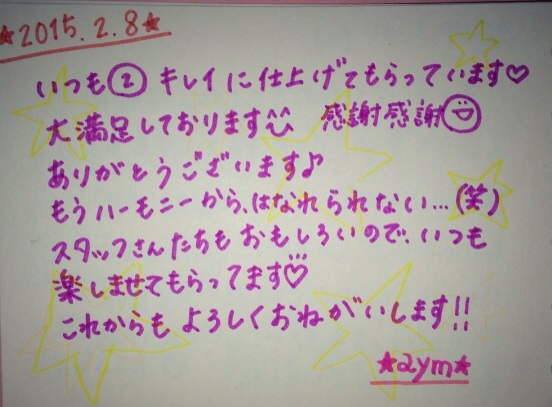 ★2015.2.8★
いつも②キレイに仕上げてもらっています♡
大満足しております 感謝感謝
ありがとうございます♪
もうハーモニーから、はなれられない…(笑)
スタッフさんたちもおもしろいので、いつも
楽しませてもらってます♡
これからもよろしくおねがいします!!
★aym★